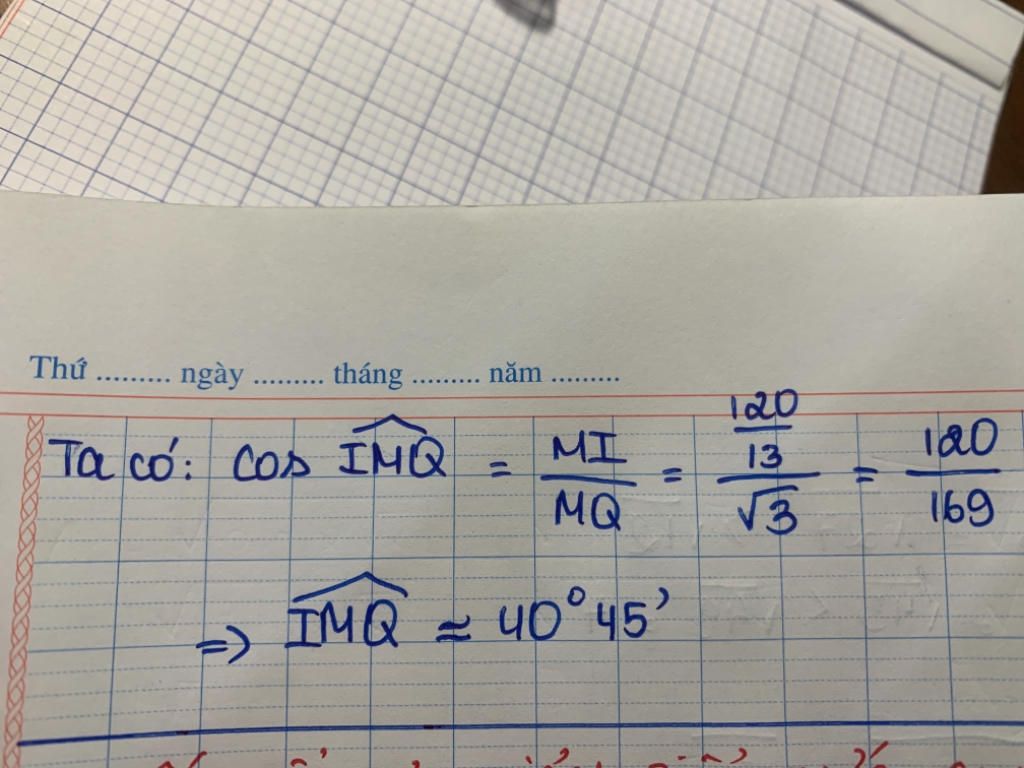 Thứ ......... ngày ......... tháng ......... năm .........
Ta có: cos \widehat{IMQ} = \frac{MI}{MQ} = \frac{\frac{120}{13}}{\sqrt{3}} = \frac{120}{169}
=> \widehat{IMQ} ≈ 40°45'